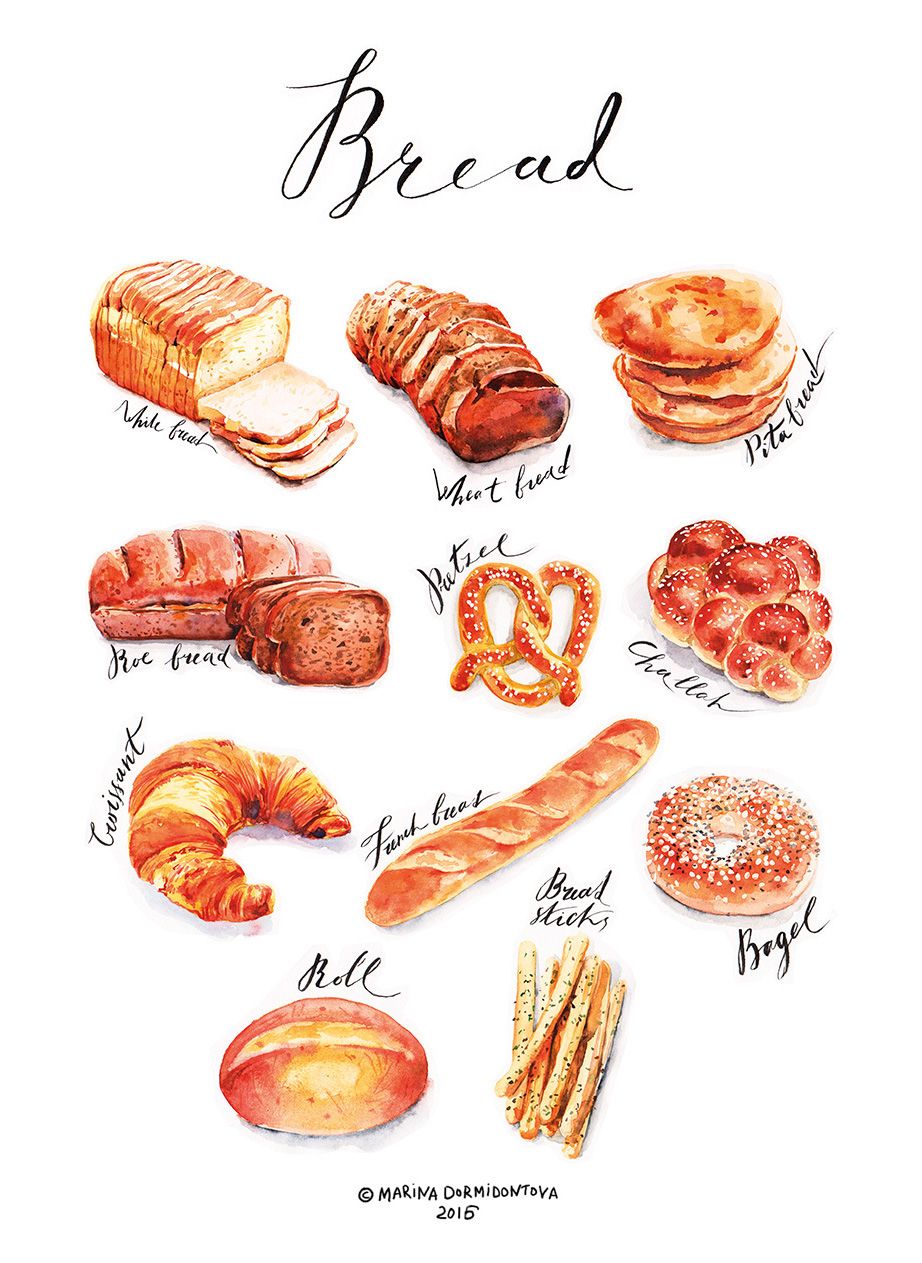 Bread
White bread
Wheat bread
Pita bread
Roe bread
Pretzel
Challah
Croissant
French bread
Bread
sticks
Bagel
Roll
© MARINA DORMIDONTOVA
2015